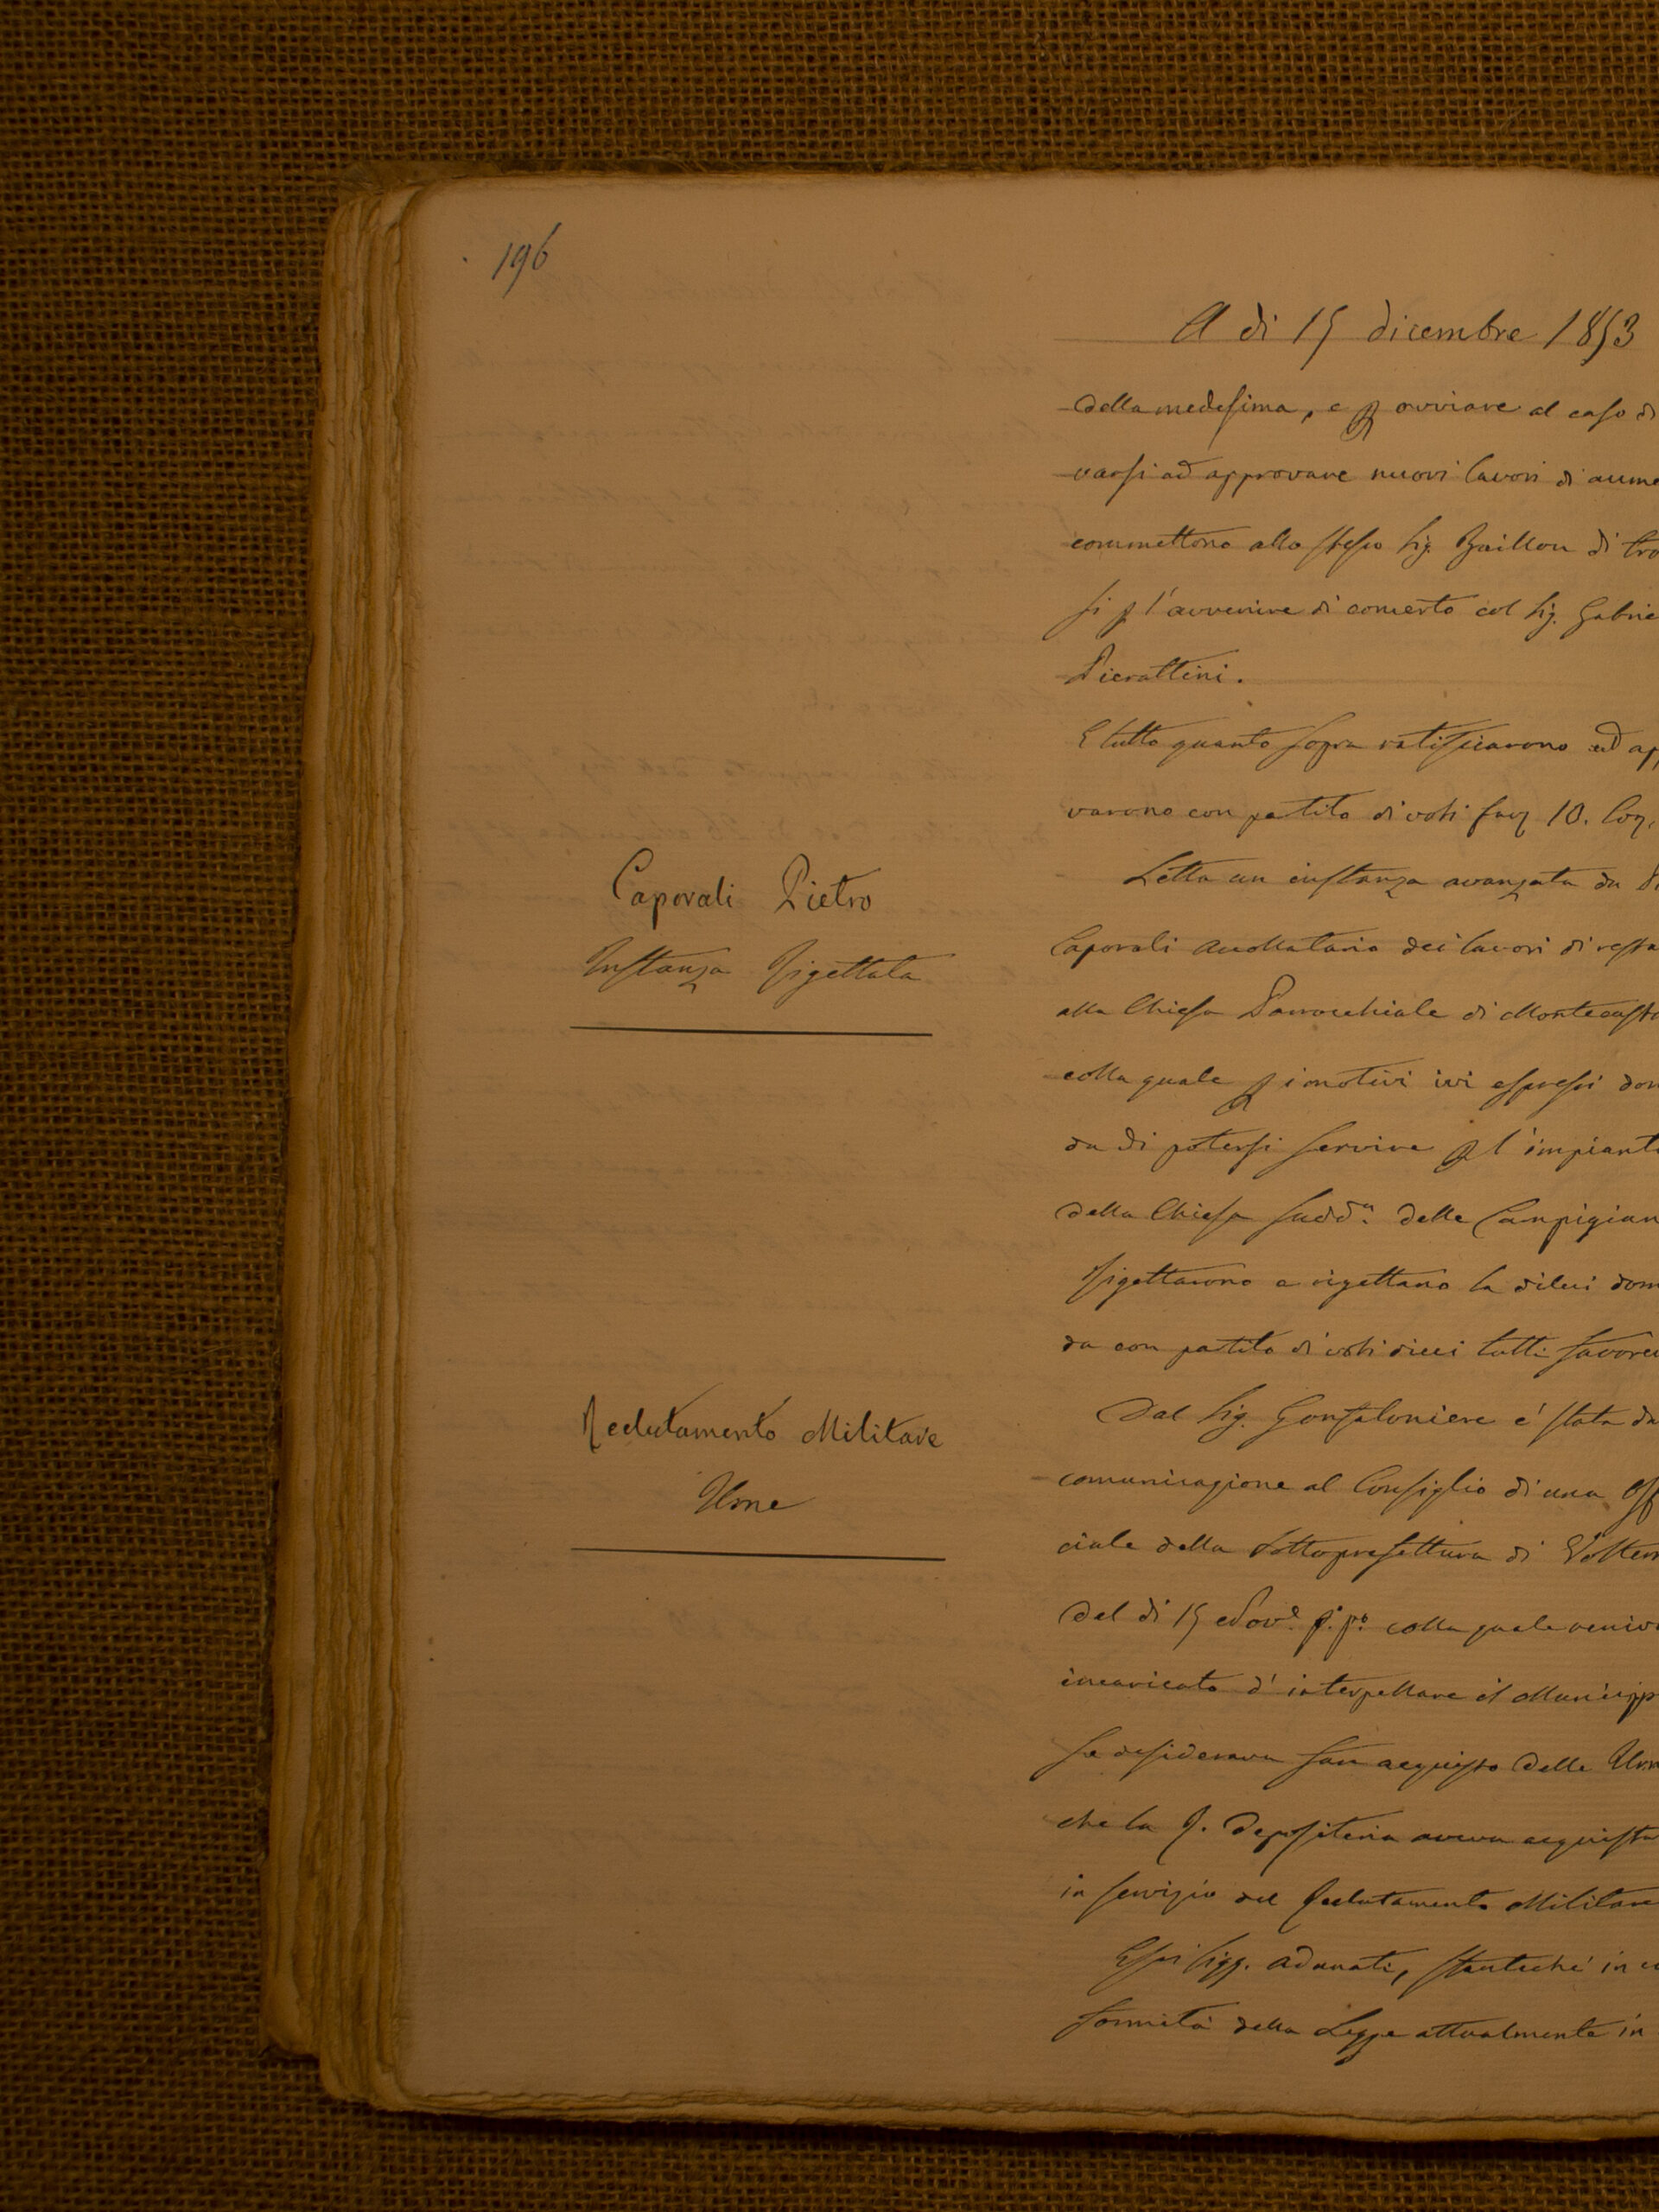 196
A dì 15 dicembre 1853
della medesima, e p ovviare al caso di
varsi ad approvare nuovi lavori di aume
commettono allo stesso Sig. Baillou di tro
si p l'avvenire di concerto col Sig. Gabrie
Pierattini.
E tutto quanto sopra ratificarono ed ap
varono con partito di voti fav 10. Con,
Caporali Pietro
Instanza Rigettata
Letta un instanza avanzata da Pi
Caporali Accollatario dei lavori di resta
alla Chiesa Parrocchiale di Montecasti
colla quale p i motivi ivi espressi dom
da di potersi servire p l'impianti
della Chiesa Sudd.a delle Campigian
Rigettarono e rigettano la di lui dom
da con partito di voti dieci tutti favorev
Reclutamento Militare
Urne
Dal Sig. Gonfaloniere è stata da
comunicazione al Consiglio di una Off
ciale della Sottoprefettura di Volterr
del dì 15 Nov.e p.po colla quale veniv
incaricato d'interpellare il Municipp
se desiderava fare acquisto delle Urn
che la R. Depositeria aveva acquista
in servizio del Reclutamento Militare
Essi Sigg. Adunati, stanteché in co
formità della Legge attualmente in